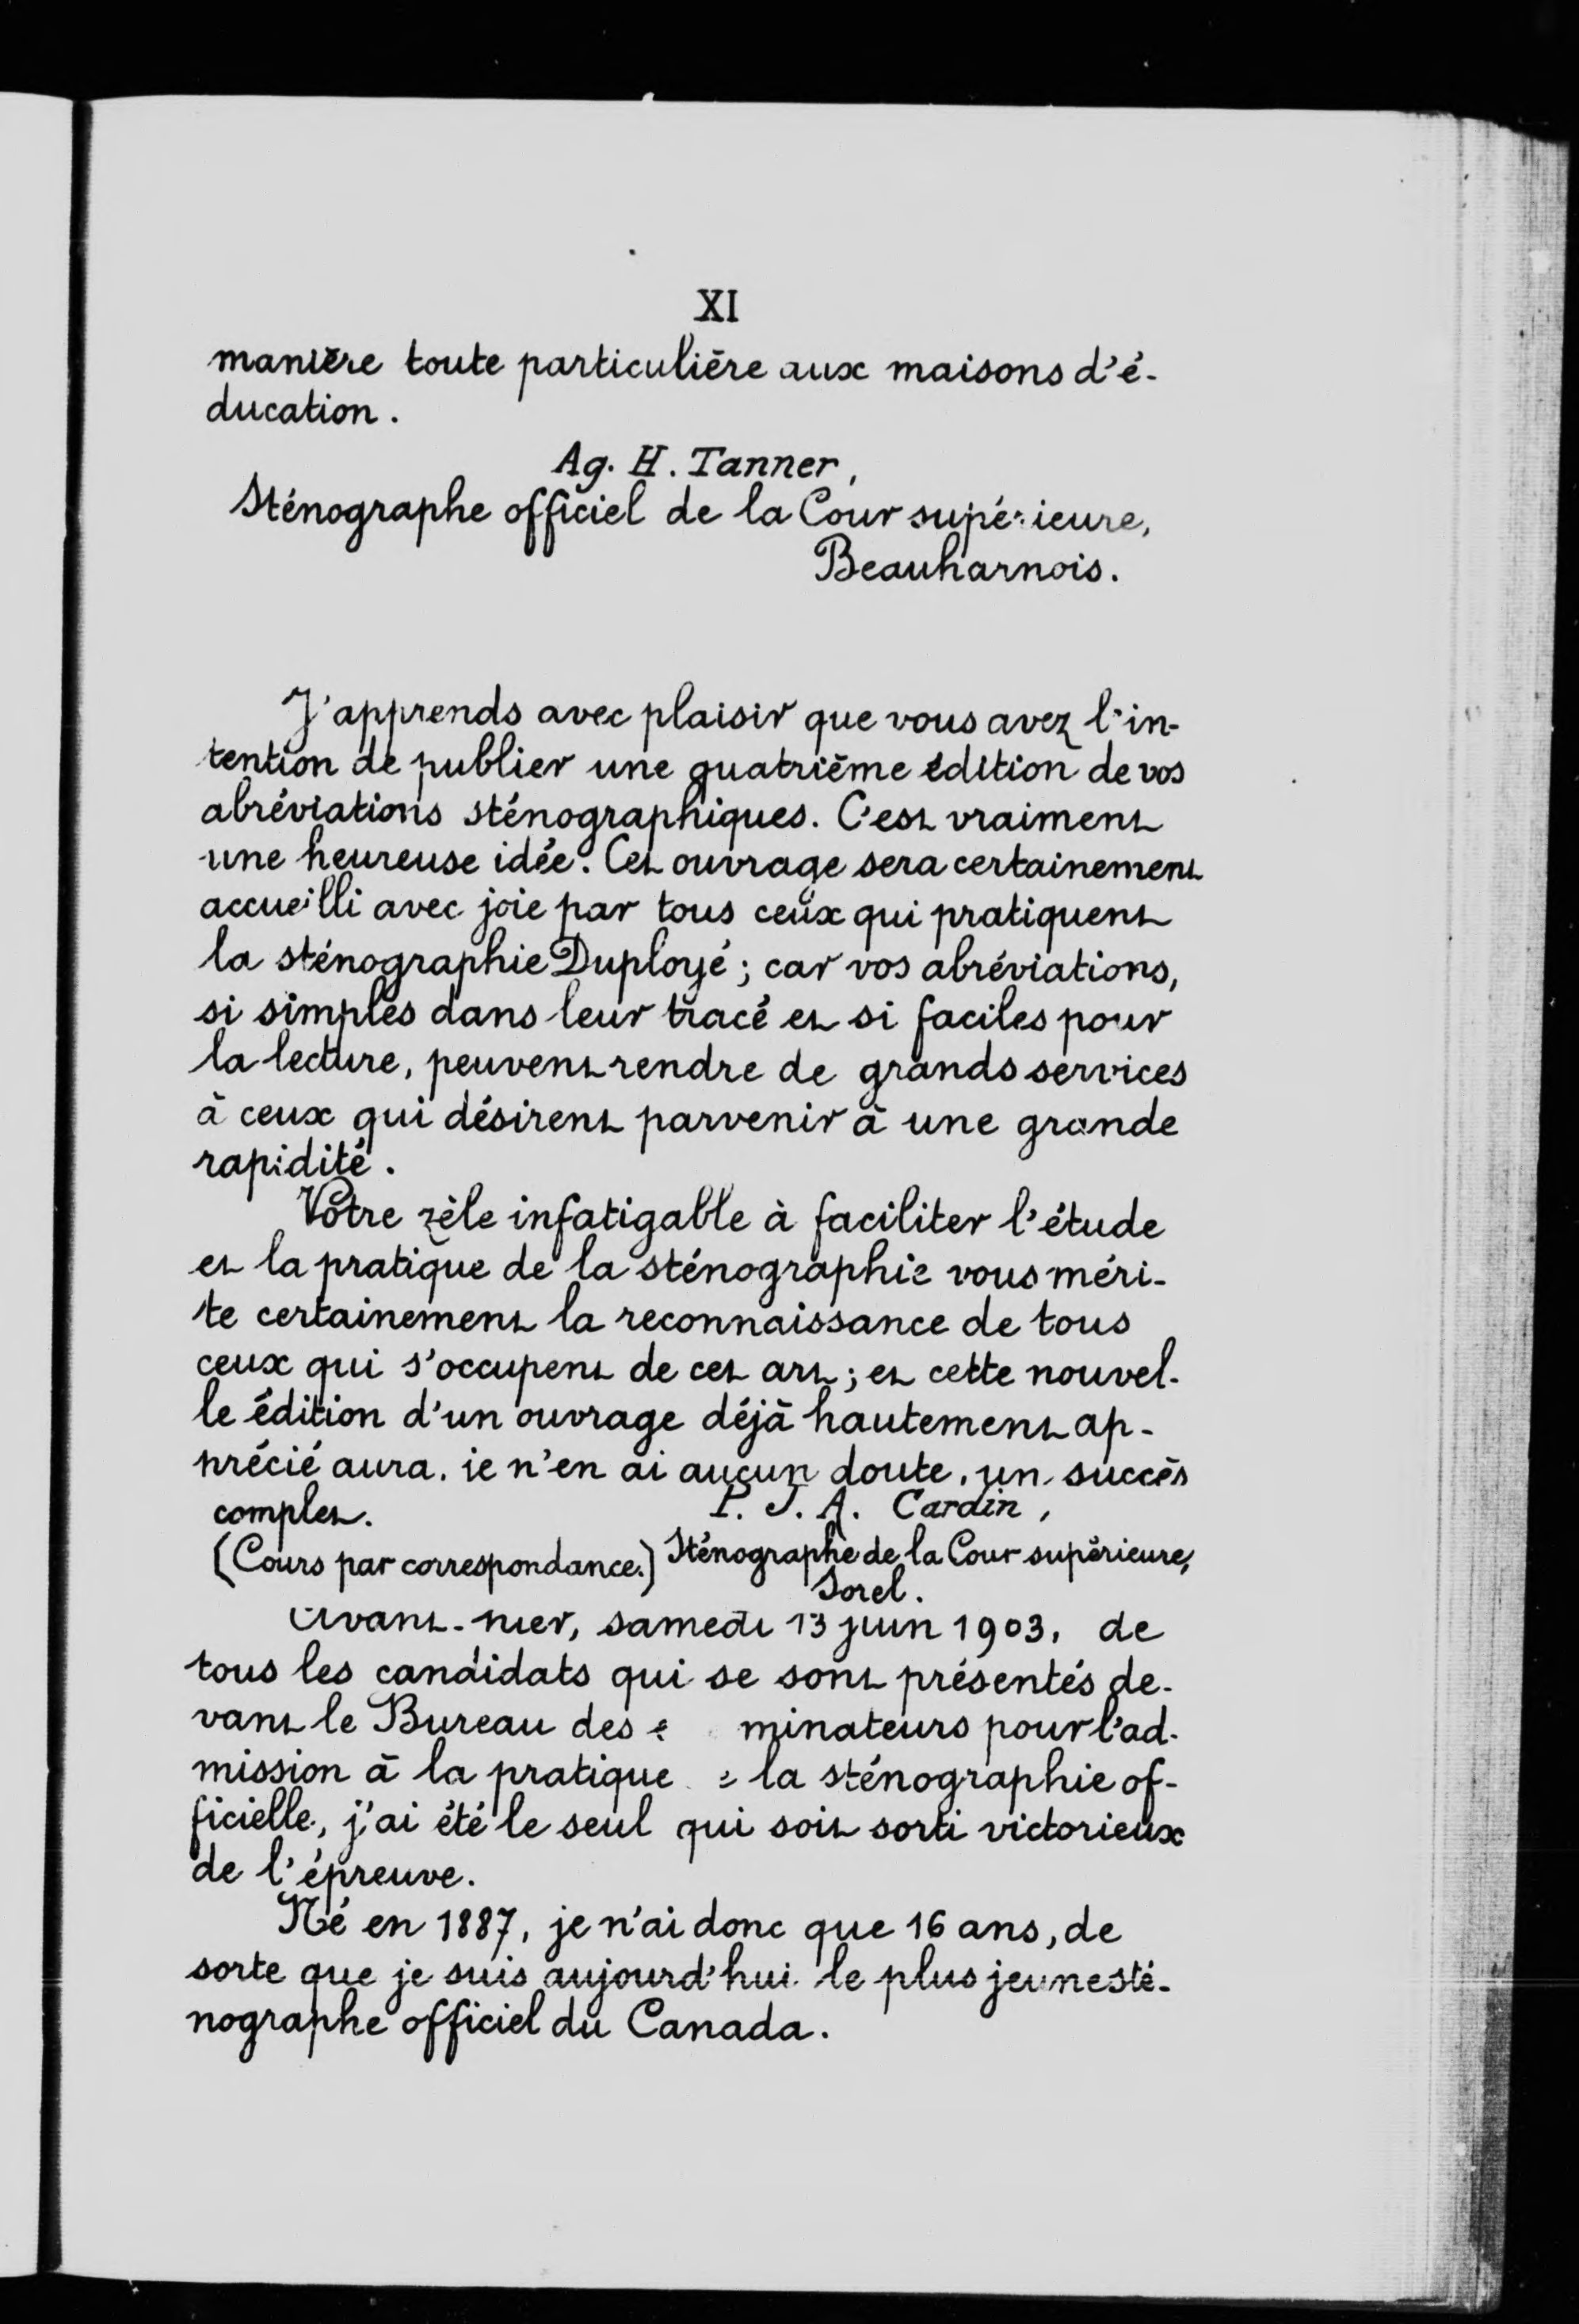 XI
manière toute particulière aux maisons d'é-
ducation.
Ag. H. Tanner,
Sténographe officiel de la Cour supérieure,
Beauharnois.
J'apprends avec plaisir que vous avez l'in-
tention de publier une quatrième édition de vos
abréviations sténographiques. C'est vraiment
une heureuse idée. Cet ouvrage sera certainement
accueilli avec joie par tous ceux qui pratiquent
la sténographie Duployé; car vos abréviations,
si simples dans leur tracé et si faciles pour
la lecture, peuvent rendre de grands services
à ceux qui désirent parvenir à une grande
rapidité.
Votre zèle infatigable à faciliter l'étude
et la pratique de la sténographie vous méri-
te certainement la reconnaissance de tous
ceux qui s'occupent de cet art; et cette nouvel-
le édition d'un ouvrage déjà hautement ap-
précié aura, je n'en ai aucun doute, un succès
complet. P. J. A. Cardin,
(Cours par correspondance.) Sténographe de la Cour supérieure,
Sorel.
Avant-hier, samedi 13 juin 1903, de
tous les candidats qui se sont présentés de-
vant le Bureau des minateurs pour l'ad-
mission à la pratique la sténographie of-
ficielle, j'ai été le seul qui soit sorti victorieux
de l'épreuve.
Né en 1887, je n'ai donc que 16 ans, de
sorte que je suis aujourd'hui le plus jeune sté-
nographe officiel du Canada.